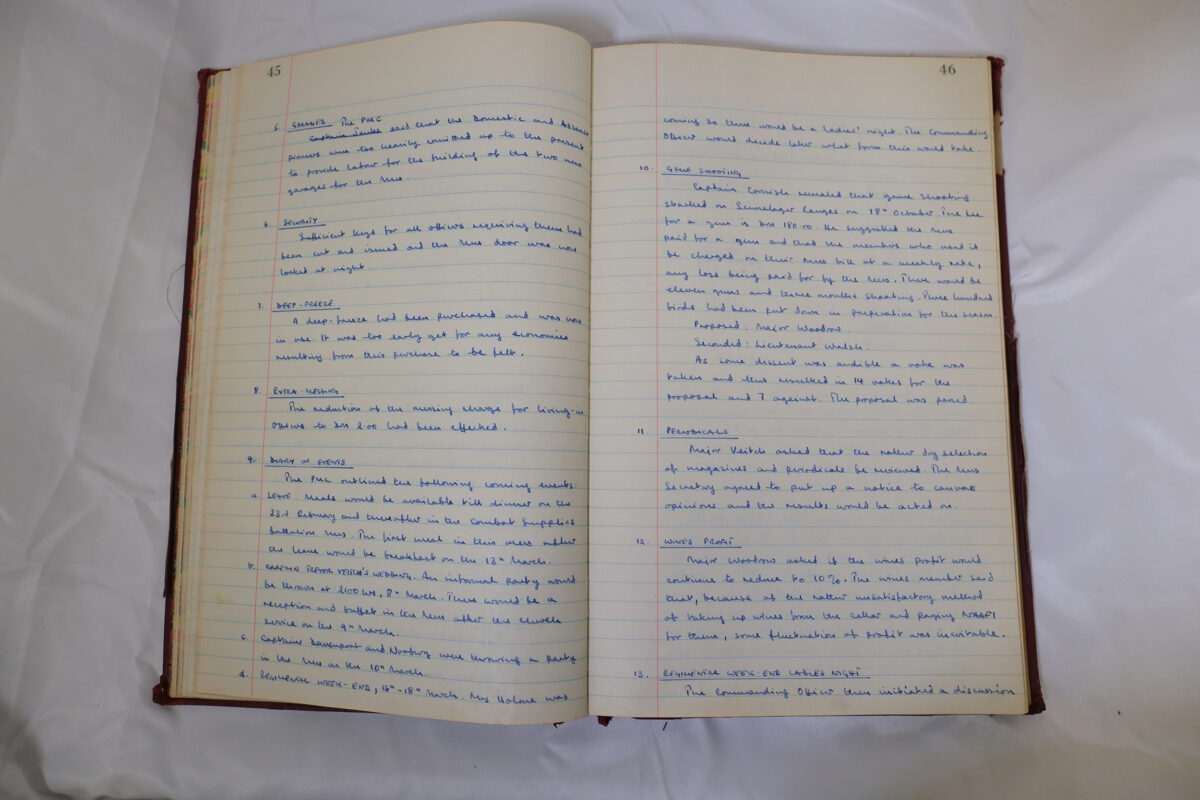 45
5. GARAGES The PMC
Captain Jenks said that the Domestic and Assault
pioneers were too heavily committed up to the present
to provide labour for the building of the two new
garages for the Mess.
6. SECURITY
Sufficient keys for all officers requiring them had
been cut and issued and the Mess door was now
locked at night.
7. DEEP-FREEZE
A deep-freeze had been purchased and was now
in use. It was too early yet for any economies
resulting from this purchase to be felt.
8. EXTRA-MESSING
The reduction of the messing charge for living-in
officers to DM 2.00 had been effected.
9. DIARY OF EVENTS
The PMC outlined the following coming events:
a. LEAVE. Meals would be available till dinner on the
23rd February and thereafter in the Combat Supplies
Battalion Mess. The first meal in this mess after
the leave would be breakfast on the 13th March.
b. CAPTAIN TREVOR VEITCH'S WEDDING. An informal party would
be thrown at 2100 hrs, 8th March. There would be a
reception and buffet in the Mess after the church
service on the 9th March.
c. Captains Davenport and Norbury were throwing a party
in the Mess on the 10th March.
d. REGIMENTAL WEEK-END, 16th - 18th March. Mrs Holme was
46
coming so there would be a Ladies' night. The Commanding
Officer would decide later what form this would take.
10. GAME SHOOTING
Captain Cornish revealed that game shooting
started on Sennelager Ranges on 18th October. The fee
for a gun is DM 180.00. He suggested the Mess
paid for a gun and that the members who used it
be charged on their Mess bill at a weekly rate,
any loss being paid for by the Mess. There would be
eleven guns and three months shooting. Three hundred
birds had been put down in preparation for the season.
Proposed: Major Woodrow.
Seconded: Lieutenant Walsh.
As some discent was audible a vote was
taken and this resulted in 14 votes for the
proposal and 7 against. The proposal was passed.
11. PERIODICALS
Major Veitch asked that the rather dry selection
of magazines and periodicals be reviewed. The Mess
Secretary agreed to put up a notice to canvas
opinions and the results would be acted on.
12. WINES PROFIT
Major Woodrow asked if the wines profit would
continue to reduce to 10%. The wines member said
that, because of the rather unsatisfactory method
of taking up wines from the cellar and paying NAAFI
for them, some fluctuation of profit was inevitable.
13. REGIMENTAL WEEK-END LADIES NIGHT
The Commanding Officer then initiated a discussion